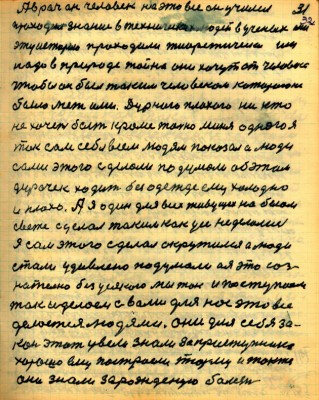 31
32
А врачам человек на это все они учили
проходил знание в техникумах людей в ученых
эту историю проходили теоретически им
надо в природе тайна они хочут от человека
чтобы он был таким человеком которого
было Дурного плохого ни кто
не хочет быть кроме только меня одного я
так сам себя всем людям показал а люди
сами этого сделали подумали об этом
дурочек ходит без одежде ему холодно
и плохо. А я один для всех живущих на белом
свете сделал таким как не делали
Я сам этого сделал окрутился а люди
стали удивлено подумали а я это соз-
нательно без всякого так и поступаем
так сделаем с вами для нас это все
делается людями. они для себя за-
кон этот ввели знали за преступника
хорошо ему построили тюрму и тоже
они знали зарожденую болезнь